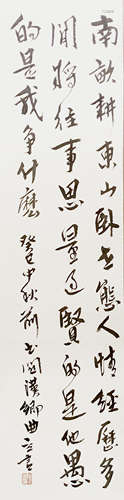 南畝耕東山卧世態人情經歷多
閒將往事思量過賢的是他愚
的是我争什麼 癸巳中秋前書關漢卿曲